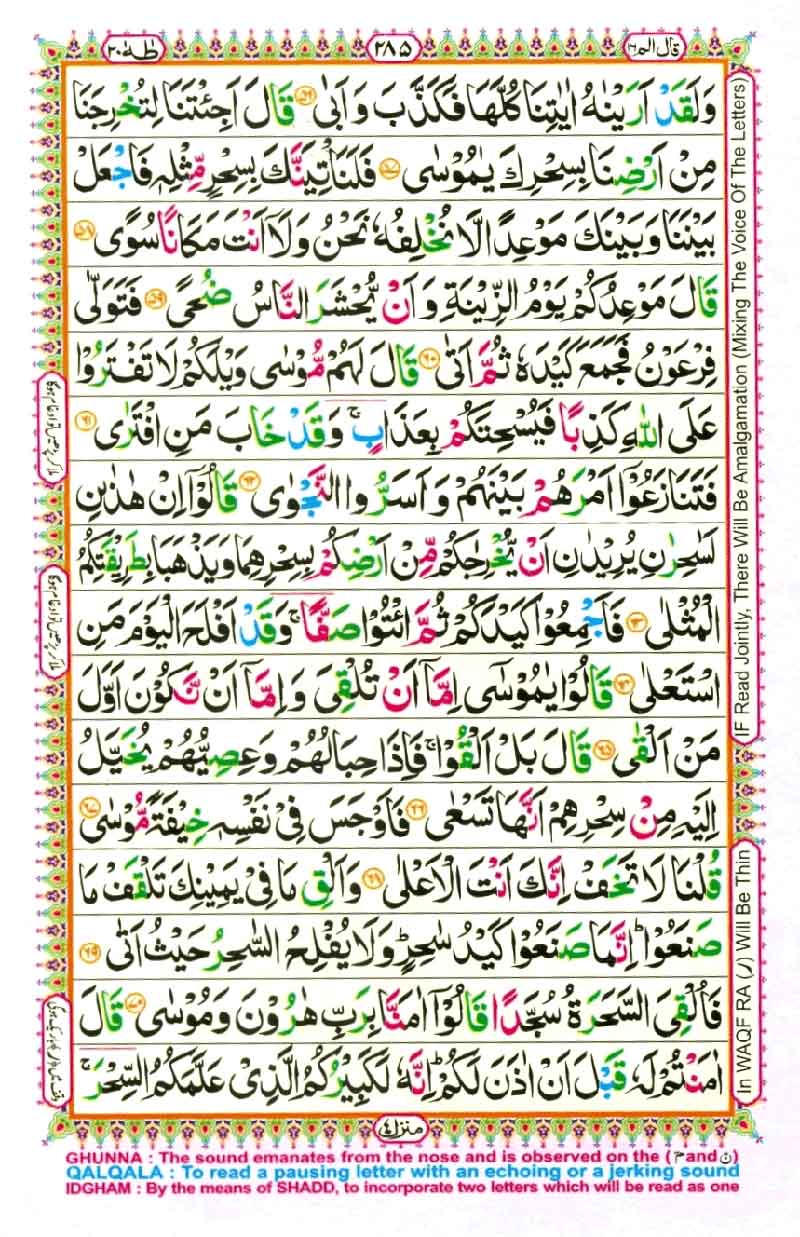 قال الم ١٦
٢٨٥
طٰهٰ ٢٠
وَلَقَدْ اَرَيْنٰهُ اٰيٰتِنَا كُلَّهَا فَكَذَّبَ وَاَبٰى ۝٥٦ قَالَ اَجِئْتَنَا لِتُخْرِجَنَا
مِنْ اَرْضِنَا بِسِحْرِكَ يٰمُوْسٰى ۝٥٧ فَلَنَاْتِيَنَّكَ بِسِحْرٍ مِّثْلِهٖ فَاجْعَلْ
بَيْنَنَا وَبَيْنَكَ مَوْعِدًا لَّا نُخْلِفُهٗ نَحْنُ وَلَاۤ اَنْتَ مَكَانًا سُوًى ۝٥٨
قَالَ مَوْعِدُكُمْ يَوْمُ الزِّيْنَةِ وَاَنْ يُّحْشَرَ النَّاسُ ضُحًى ۝٥٩ فَتَوَلّٰى
فِرْعَوْنُ فَجَمَعَ كَيْدَهٗ ثُمَّ اَتٰى ۝٦٠ قَالَ لَهُمْ مُّوْسٰى وَيْلَكُمْ لَا تَفْتَرُوْا
عَلَى اللّٰهِ كَذِبًا فَيُسْحِتَكُمْ بِعَذَابٍ ۚ وَقَدْ خَابَ مَنِ افْتَرٰى ۝٦١
فَتَنَازَعُوْۤا اَمْرَهُمْ بَيْنَهُمْ وَاَسَرُّوا النَّجْوٰى ۝٦٢ قَالُوْۤا اِنْ هٰذٰىنِ
لَسٰحِرٰنِ يُرِيْدٰنِ اَنْ يُّخْرِجٰكُمْ مِّنْ اَرْضِكُمْ بِسِحْرِهِمَا وَيَذْهَبَا بِطَرِيْقَتِكُمُ
الْمُثْلٰى ۝٦٣ فَاَجْمِعُوْا كَيْدَكُمْ ثُمَّ ائْتُوْا صَفًّا ۚ وَقَدْ اَفْلَحَ الْيَوْمَ مَنِ
اسْتَعْلٰى ۝٦٤ قَالُوْا يٰمُوْسٰۤى اِمَّاۤ اَنْ تُلْقِىَ وَاِمَّاۤ اَنْ نَّكُوْنَ اَوَّلَ
مَنْ اَلْقٰى ۝٦٥ قَالَ بَلْ اَلْقُوْا ۚ فَاِذَا حِبَالُهُمْ وَعِصِيُّهُمْ يُخَيَّلُ
اِلَيْهِ مِنْ سِحْرِهِمْ اَنَّهَا تَسْعٰى ۝٦٦ فَاَوْجَسَ فِىْ نَفْسِهٖ خِيْفَةً مُّوْسٰى ۝٦٧
قُلْنَا لَا تَخَفْ اِنَّكَ اَنْتَ الْاَعْلٰى ۝٦٨ وَاَلْقِ مَا فِىْ يَمِيْنِكَ تَلْقَفْ مَا
صَنَعُوْا ؕ اِنَّمَا صَنَعُوْا كَيْدُ سٰحِرٍ ؕ وَلَا يُفْلِحُ السَّاحِرُ حَيْثُ اَتٰى ۝٦٩
فَاُلْقِىَ السَّحَرَةُ سُجَّدًا قَالُوْۤا اٰمَنَّا بِرَبِّ هٰرُوْنَ وَمُوْسٰى ۝٧٠ قَالَ
اٰمَنْتُمْ لَهٗ قَبْلَ اَنْ اٰذَنَ لَكُمْ ؕ اِنَّهٗ لَكَبِيْرُكُمُ الَّذِىْ عَلَّمَكُمُ السِّحْرَ ۚ
منزل ٤
IF Read Jointly, There Will Be Amalgamation (Mixing The Voice Of The Letters)
In WAQF RA (ر) Will Be Thin
GHUNNA : The sound emanates from the nose and is observed on the (م and ن)
QALQALA : To read a pausing letter with an echoing or a jerking sound
IDGHAM : By the means of SHADD, to incorporate two letters which will be read as one